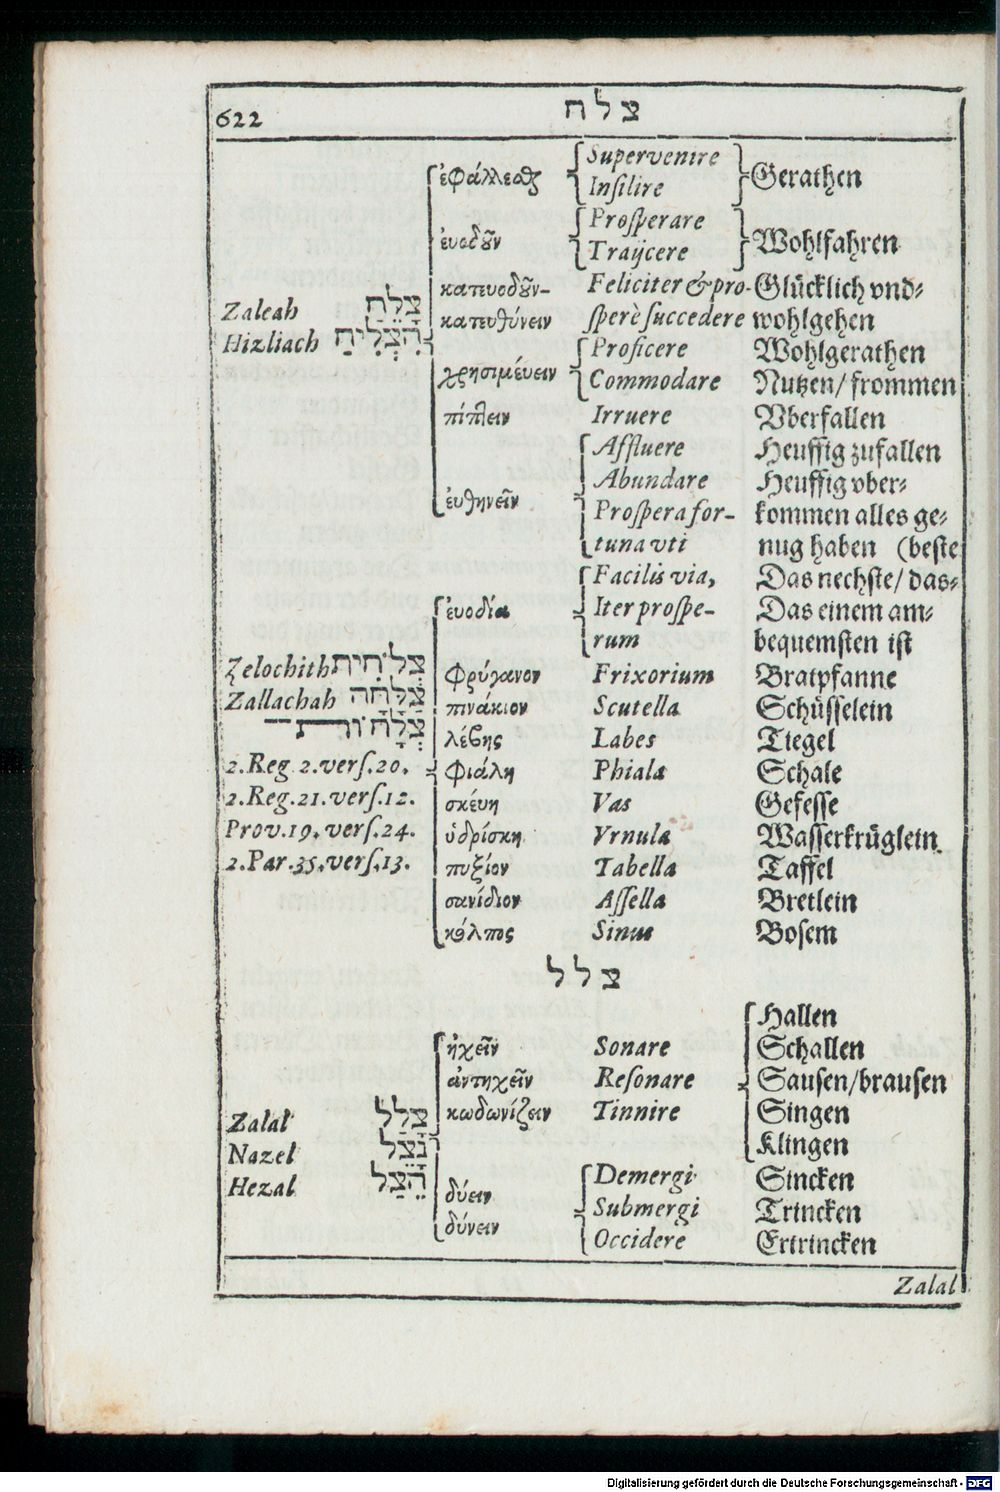 622 צלח
ἐφάλλεσθαι Supervenire Gerathen
Insilire
ἐυοδοῦν Prosperare Wohlfahren
Traijcere
κατευοδοῦν- Feliciter & pro- Glücklich vnd-
Zaleah צָלֵחַ κατευθύνειν sperè succedere wohlgehen
Hizliach הִצְלִיחַ Proficere Wohlgerathen
χρησιμέυειν Commodare Nutzen/ frommen
πίπτειν Irruere Vberfallen
Affluere Heuffig zufallen
Abundare Heuffig vber-
ἐυθηνεῖν Prospera for- kommen alles ge-
tuna vti nug haben (beste
Facilis via, Das nechste/ das-
ἐυοδία Iter prospe- Das einem am-
rum bequemsten ist
Zelochith צְלֹחִית φρύγανον Frixorium Bratpfanne
Zallachah צַלָּחָה πινάκιον Scutella Schüsselein
צְלָחוֹרת λέβης Labes Tiegel
2.Reg 2.vers.20. φιάλη Phiala Schale
2.Reg.21.vers.12. σκέυη Vas Gefesse
Prov.19.vers.24. ὑδρίσκη Vrnula Wasserkrüglein
2.Par.35.vers.13. πυξίον Tabella Taffel
σανίδιον Assella Bretlein
κόλπος Sinus Bosem
צלל
Hallen
ἠχεῖν Sonare Schallen
ἀντηχεῖν Resonare Sausen/brausen
Zalal צָלַל κωδωνίζειν Tinnire Singen
Nazel נָצַל Klingen
Hezal הֵצַל Demergi Sincken
δύειν Submergi Trincken
δύνειν Occidere Ertrincken
Zalal
Digitalisierung gefördert durch die Deutsche Forschungsgemeinschaft - DFG